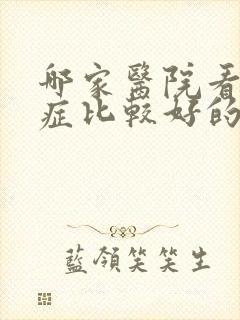 哪家醫院看
症比較好的
藍領笑笑生